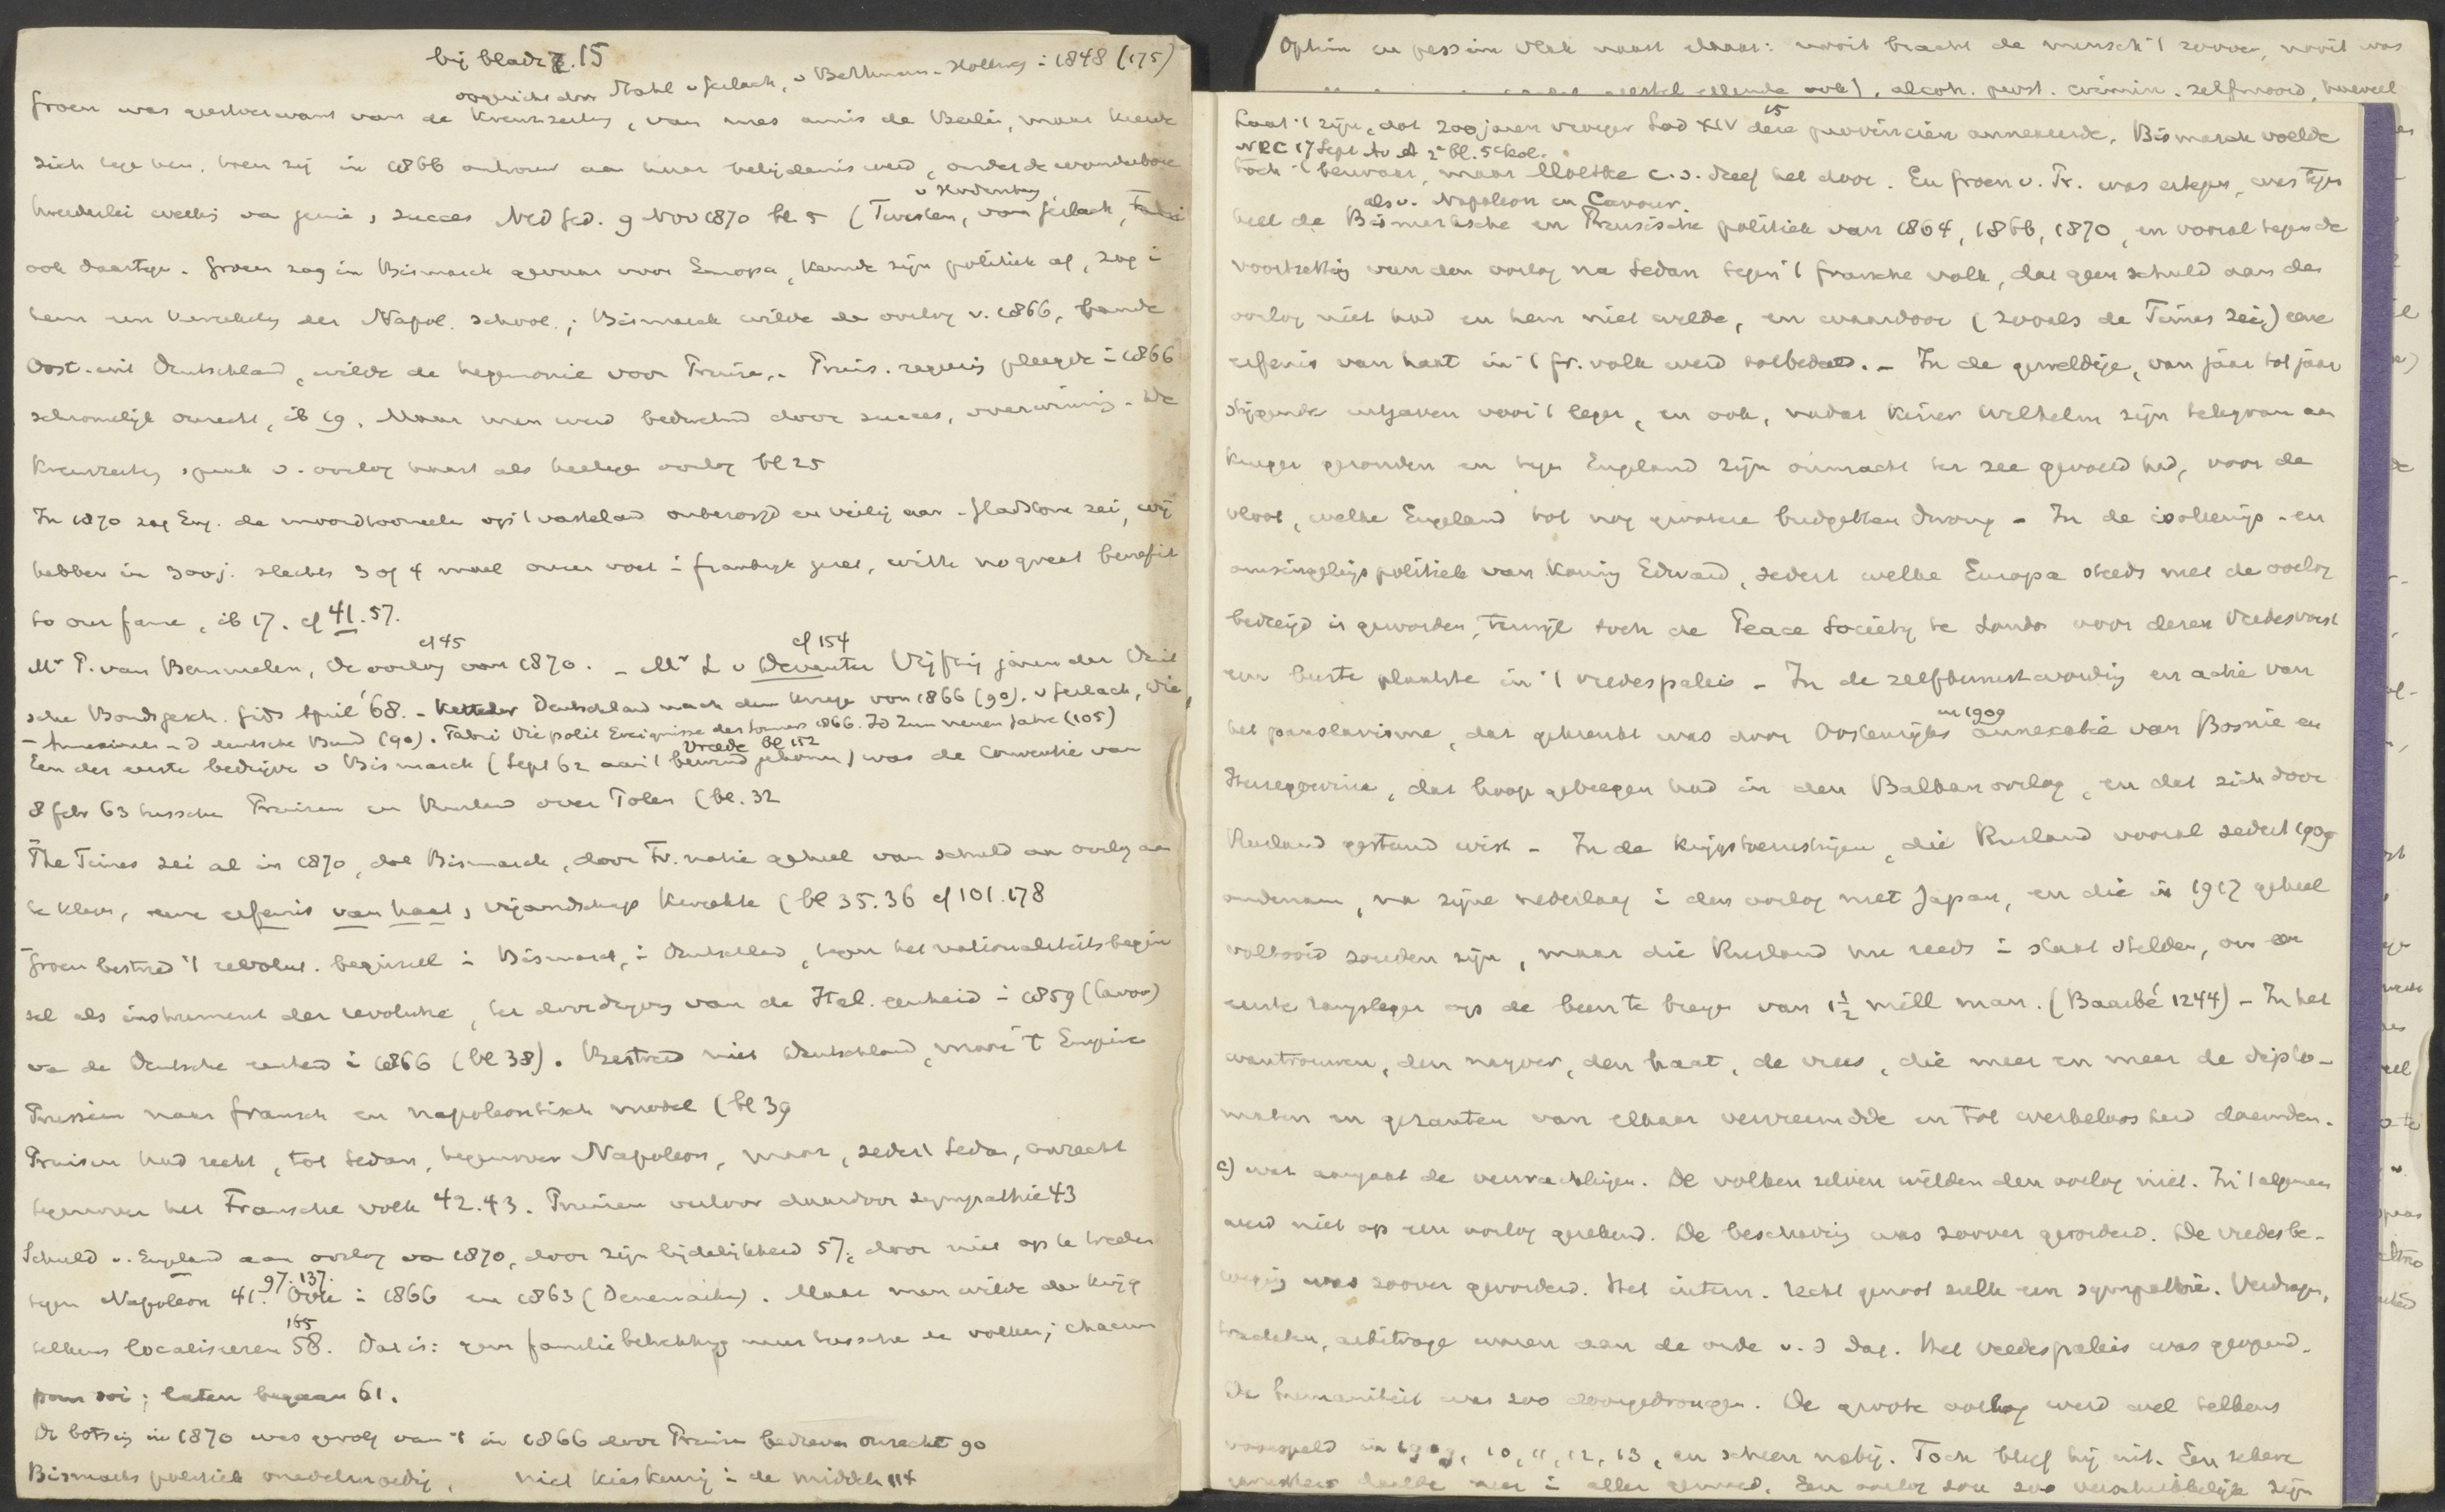 bij bladz. 15
opgericht door Stahl v Gerlach, v Bethmann-Hollweg i 1848 (175)
Groen was geestverwant van de Kreuzzeitung, van mes amis de Berlin, maar keerde
zich tege hen, toen zij in 1866 ontrouw aan hunne belijdenis werd, onder de wonderbare
tweederlei van genie, succes Ned Ged. 9 Nov 1870 bl 5 (Twesten, von Gerlach,
ook daartege. Groen zag in Bismarck gevaar voor Europa, keurde zijn politiek af, zag i
hem een kweekeling der Napol. school.; Bismarck wilde de oorlog v. 1866, bande
Oost. uit Deutschland, wilde de hegemonie voor Pruise. Pruis. regering pleegde i 1866
schromelijk onrecht, ib 19. Maar men werd bedwelmd door succes, overwinning. De
Kreuzzeitung sprak v. oorlog haast als heilige oorlog bl 25
In 1870 zag Eng. de moordtooneelen op 't vasteland onbezorgd en veilig aan. Gladstone zei, wij
hebben in 300 j. slechts 3 of 4 maal onzen voet i frankrijk gezet, with no great benefit
to our fame, ib 17. cf 41. 57.
cf 45 cf 154
Mr P. van Bemmelen, De oorlog van 1870. - Mr L v Deventer Vijftig jaren der Duit
sche Bondsgesch. Gids April '68. - Ketteler Deutschland nach dem Kriege von 1866 (90). v Gerlach, Die
- Annexionen u d deutsche Bund (90). Fabri Die polit Ereignisse des Sommers 1866. Id Zum neuen Jahre (105)
Vrede bl 152
Een der eerste bedrijve v Bismarck (Sept 62 aan 't bewind gekomen) was de Conventie van
8 febr 63 tussche Pruisen en Rusland over Polen (bl. 32
The Times zei al in 1870, dat Bismarck, door Fr. natie geheel van schuld aan oorlog aan
te klagen, eene erfenis van haat, vijandschap kweekte (bl 35. 36 cf 101. 178
Groen bestreed 't revolut. beginsel i Bismarck, i Duitschland, tegen het nationaliteitsbegin
sel als instrument der revolutie, ter doordrijving van de Ital. eenheid i 1859 (Cavour)
va de Duitsche eenheid i 1866 (bl 38). Bestreed niet Duitschland, maar 't Empire
Prussien naar fransch en napoleontisch model (bl 39
Pruisen had recht, tot Sedan, tegenover Napoleon, maar, sedert Sedan, onrecht
tegenover het Fransche volk 42. 43. Pruisen verloor daardoor sympathie 43
Schuld v. England aan oorlog van 1870, door zijn lijdelijkheid 57, door niet op te treden
97. 137.
tegen Napoleon 41. Ook i 1866 en 1863 (Denemarken). Maar men wilde den krijg
165
telkens localiseren 58. Dat is: geen familiebetrekking meer tussche de volken; chacun
pour soi; laten begaan 61.
De botsing in 1870 was gevolg van 't in 1866 door Pruisen bedreven onrecht 90
Bismarcks politiek onedelmoedig, niet kieskeurig i de middelen 114
Optim en pessim vlak naast elkaar: nooit bracht de mensch 't zoover, nooit was
alcoh. prost. crimin. zelfmoord, hoeveel
Laat 't zijn, dat 200 jaren vroeger Lod XIV deze provinciën annexeerde. Bismarck voelde
NRC 17 Sept Av A 2e bl. 5e kol.
toch 't bezwaar, maar Moltke c.s. dreef het door. En Groen v. Pr. was ertegen, was tegen
als v. Napoleon en Cavour.
heel de Bismarksche en Pruisische politiek van 1864, 1866, 1870, en vooral tegen de
voortzetting van den oorlog na Sedan tegen 't fransche volk, dat geen schuld aan den
oorlog niet had en hem niet wilde, en waardoor (zooals de Times zei) eene
erfenis van haat in 't fr. volk werd . - In de geweldige, van jaar tot jaar
stijgende uitgaven voor 't leger, en ook, nadat Keizer Wilhelm zijn telegram aan
Kruger gezonden en tegen Engeland zijn onmacht ter zee gevoeld had, voor de
vloot, welke Engeland tot nog grootere budgetten dwong - In de isoleerings- en
omsingelingspolitiek van koning Edward, sedert welke Europa steeds met de oorlog
bedreigd is geworden, terwijl toch de Peace Society te Londen voor deze Vredesvorst
een buste plaatste in 't vredespaleis - In de zelfbewustwording en actie van
in 1909
het panslavisme, dat gekrenkt was door Oostenrijks annexatie van Bosnie en
Herzegowina, dat hoop gekregen had in den Balkanoorlog, en dat zich door
Rusland gesteund wist - In de krijgstoerustingen, die Rusland vooral sedert 1909
ondernam, na zijne nederlaag i den oorlog met Japan, en die in 1917 geheel
voltooid zouden zijn, maar die Rusland nu reeds i staat stelden, om een
eerste leger op de been te breng van 1½ mill man. (Baarbé 1244) - In het
wantrouwen, den naijver, den haat, de vrees, die meer en meer de diplo-
maten en gezanten van elkaar vervreemdde en tot werkeloosheid doemden.
c) wat aangaat de verwachtingen. De volken zelven wilden den oorlog niet. In 't algemeen
werd niet op een oorlog gerekend. De beschaving was zoover gevorderd. De vredesbe-
weging was zoover gevorderd. Het intern. recht genoot zulk een sympathie. Verdragen,
tractaten, arbitrage waren aan de orde v. d dag. Het vredespaleis was geopend.
De humaniteit was zoo doorgedrongen. De groote oorlog werd wel telkens
voorspeld in 1909, 10, 11, 12, 13, en scheen nabij. Toch bleef hij uit. Een zekere
daalde neer i aller gemoed. Een oorlog zou zoo verschrikkelijk zijn